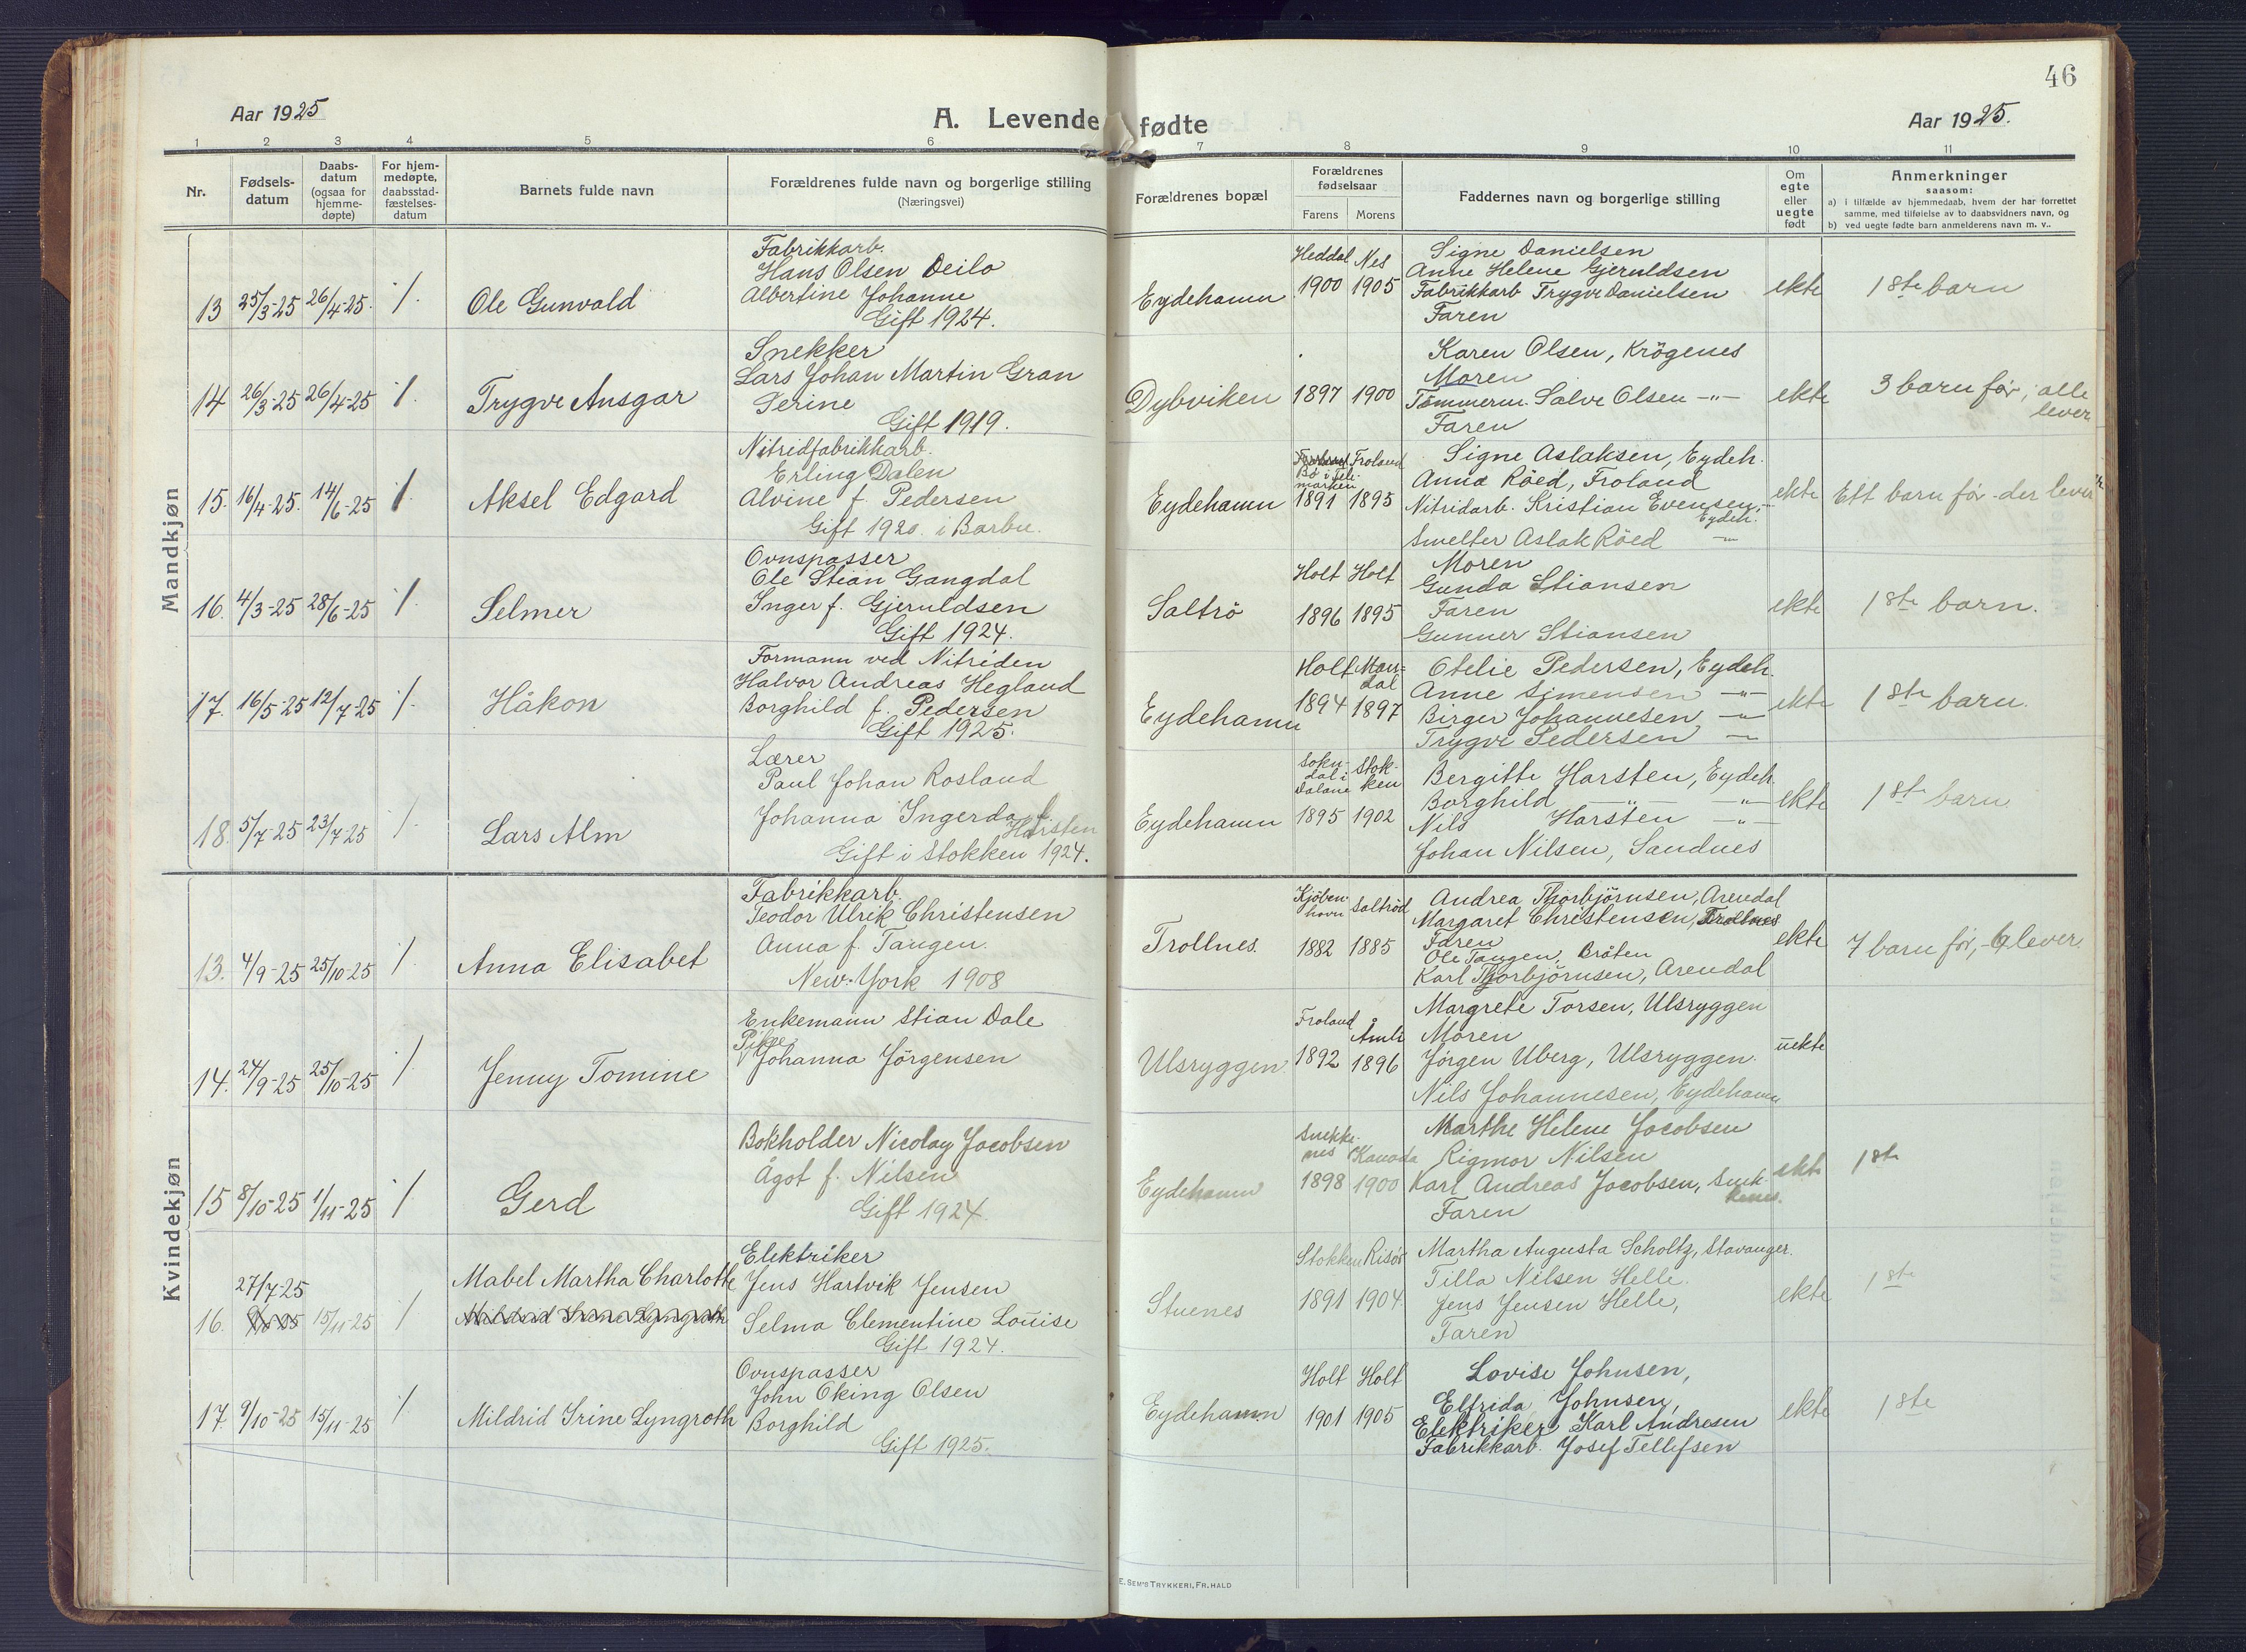 46
Aar 1925
A. Levende fødte
Aar 1925.
1 2 3 4 5 6 7 8 9 10 11
Nr.
Fødsels-
datum
Daabs-
datum
(ogsaa for
hjemme-
døpte)
For hjem-
medøpte,
daabsstad-
fæstelses-
datum
Barnets fulde navn
Forældrenes fulde navn og borgerlige stilling
(Næringsvei)
Forældrenes bopæl
Forældrenes
fødselsaar
Farens Morens
Faddernes navn og borgerlige stilling
Om
egte
eller
uegte
født
Anmerkninger
saasom:
a) i tilfælde av hjemmedaab, hvem der har forrettet
samme, med tilføielse av to daabsvidners navn, og
b) ved uegte fødte barn anmelderens navn m. v..
Mandkjøn
13 25/3-25 26/4-25. 1/. Ole Gunvald
Fabrikkarb.
Hans Olsen Deilo
Albertine Johanne
Gift 1924.
Eydehamn
Heddal Nes
1900 1905
Signe Danielsen
Anne Helene Gjeruldsen
Fabrikkarb Trygve Danielsen
Faren
ekte
1ste barn
14 26/3-25 26/4-25 1/. Trygve Ansgar
Snekker
Lars Johan Martin Gran
Serine
Gift 1919.
Dybviken
1897 1900
Karen Olsen, Krögenes
Moren
Tömmerm. Salve Olsen -"-
Faren
ekte
3 barn før, alle
lever
15. 16/4-25. 14/6-25 1/. Aksel Edgard
Nitridfabrikkarb.
Erling Dalen
Alvine f. Pedersen
Gift 1920. i Barbu.
Eydehamn
Froland
Bø i Tele
marken
1891 1895
Signe Aslaksen, Eydeh.
Anna Röed, Froland
Nitridarb. Kristian Evensen,
Eydeh.
Smelter Aslak Röed -"-
ekte
Ett barn før der lever
16. 4/3-25 28/6-25 1/. Selmer
Ovnspasser
Ole Stian Gangdal
Inger f. Gjeruldsen
Gift 1924.
Saltrö
Holt Holt
1896 1895
Moren
Gunda Stiansen
Faren
Gunner Stiansen
ekte
1ste barn.
17. 16/5-25 12/7-25 1/. Håkon
Formann ved Nitriden
Halvor Andreas Hegland
Borghild f. Pedersen
Gift 1925.
Eydehamn
Holt Man-
dal
1894 1897
Otelie Pedersen, Eydeh.
Anne Simensen -"-
Birger Johannesen -"-
Trygve Pedersen -"-
ekte
1ste barn.
18. 5/7-25 23/7-25 1/. Lars Alm
Lærer
Paul Johan Rosland
Johanna Ingerda f.
Harsten
Gift i Stokken 1924.
Eydehamn
Sokn-
dal i
Dalane
Stok-
ken
1895 1902
Bergitte Harsten, Eydeh.
Borghild -"- -"-
Nils Harsten -"-
Johan Nilsen, Sandnes
ekte
1ste barn
Kvindekjøn
13. 4/9-25 25/10-25 1/. Anna Elisabet
Fabrikkarb.
Teodor Ulrik Christensen
Anna f. Tangen.
New-York 1908
Trollnes.
Kjöben-
havn Saltröd
1882 1885
Andrea Thorbjörnsen, Arendal
Margaret Christensen, Trollnes
Faren
Ole Tangen, Bråten
Karl Thorbjörnsen, Arendal
ekte
7 barn før, - 6 lever.
14. 24/9-25 25/10-25 1/. Jenny Tomine
Enkemann Stian Dale
Pike
Johanna Jörgensen
Ulsryggen
Froland
Åmli
1892 1896
Margrete Torsen, Ulsryggen
Moren
Jørgen Uberg, Ulsryggen.
Nils Johannesen, Eydehamn
uekte
15 8/10-25 1/11-25 1/. Gerd
Bokholder Nicolay Jacobsen
Ågot f. Nilsen
Gift 1924.
Eydehamn
Snekke-
nes Kanada
1898 1900
Marthe Helene Jacobsen
Rigmor Nilsen
Karl Andreas Jacobsen, Snek-
kenes.
Faren
ekte
1ste
16. 27/7-25 15/11-25 1/ Mabel Martha Charlotte
Mildrid Irene Lyngroth
Elektriker
Jens Hartvik Jensen
Selma Clementine Louise
Gift 1924.
Stuenes
Stokken Risör
1891 1904.
Martha Augusta Scholtz, Stavanger.
Tilla Nilsen Helle.
Jens Jensen Helle,
Faren
ekte
1ste
17. 9/10-25 15/11-25 1/ Mildrid Irine Lyngroth
Ovnspasser
John Oking Olsen
Borghild
Gift 1925.
Eydehamn
Holt Holt
1901 1905
Lovise Johnsen,
Elfrida Johnsen,
Elektriker Karl Andresen
Fabrikkarb. Josef Tellefsen
ekte
1ste
E. SEM'S TRYKKERI, FR.HALD